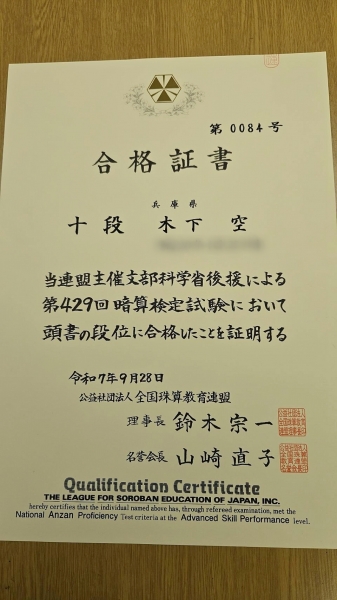 第0084号
合格証書
兵庫県
十段 木下 空
当連盟主催文部科学省後援による
第429回 暗算検定試験において
頭書の段位に合格したことを証明する
令和7年9月28日
公益社団法人 全国珠算教育連盟
理事長 鈴木宗一
名誉会長 山崎直子
Qualification Certificate
THE LEAGUE FOR SOROBAN EDUCATION OF JAPAN, INC.
hereby certifies that the individual named above has, through refereed examination, met the
National Anzan Proficiency Test criteria at the Advanced Skill Performance level.